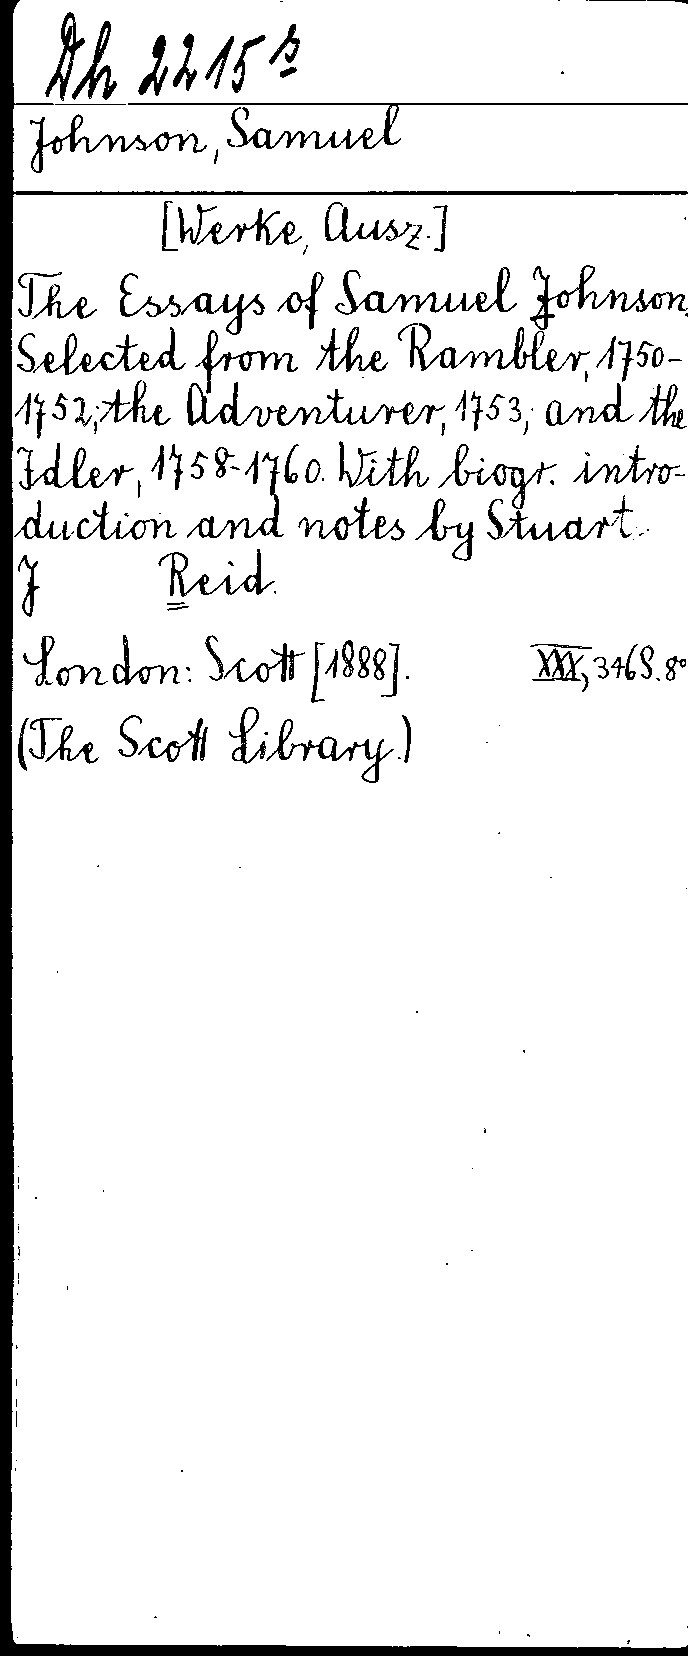 Dh 2215 s
Johnson, Samuel
[Werke, Ausz.]
The Essays of Samuel Johnson,
Selected from the Rambler, 1750-
1752; the Adventurer, 1753; and the
Idler, 1758-1760. With biogr. intro-
duction and notes by Stuart
J Reid.
London: Scott [1888]. XXX, 346 S. 8°
(The Scott Library.)